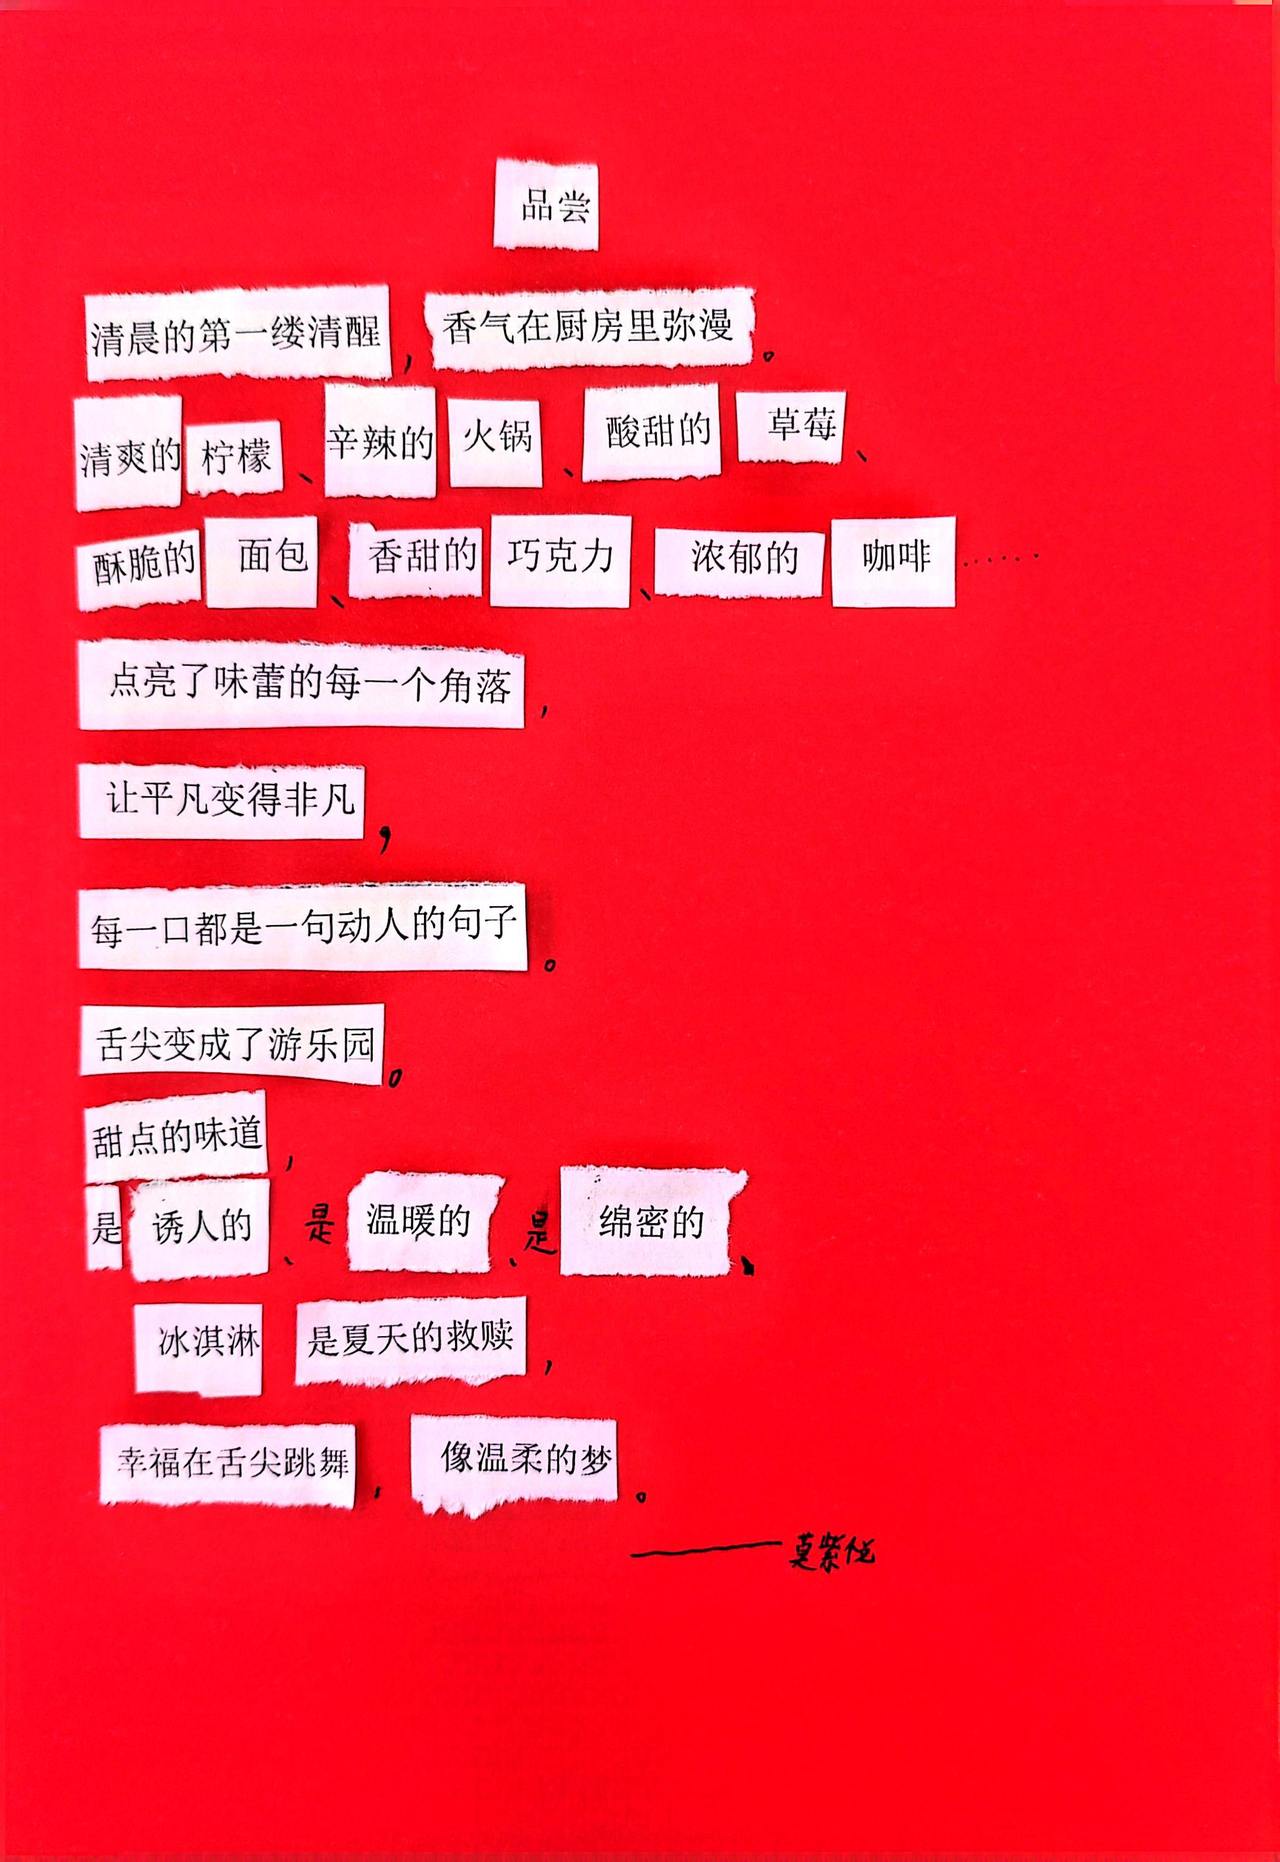 品尝
清晨的第一缕清醒，香气在厨房里弥漫。
清爽的柠檬、辛辣的火锅、酸甜的草莓、
酥脆的面包、香甜的巧克力、浓郁的咖啡……
点亮了味蕾的每一个角落，
让平凡变得非凡，
每一口都是一句动人的句子。
舌尖变成了游乐园。
甜点的味道，
是诱人的、是温暖的、是绵密的、
冰淇淋是夏天的救赎，
幸福在舌尖跳舞，像温柔的梦。
——莫紫悦